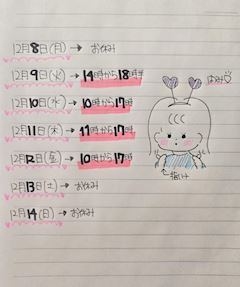 12月8日(月)→ お休み
12月9日(火)→ 14時から18時半
12月10日(水)→ 10時から17時
12月11日(木)→ 11時から17時
12月12日(金)→ 10時から17時
12月13日(土)→ お休み
12月14日(日)→ お休み